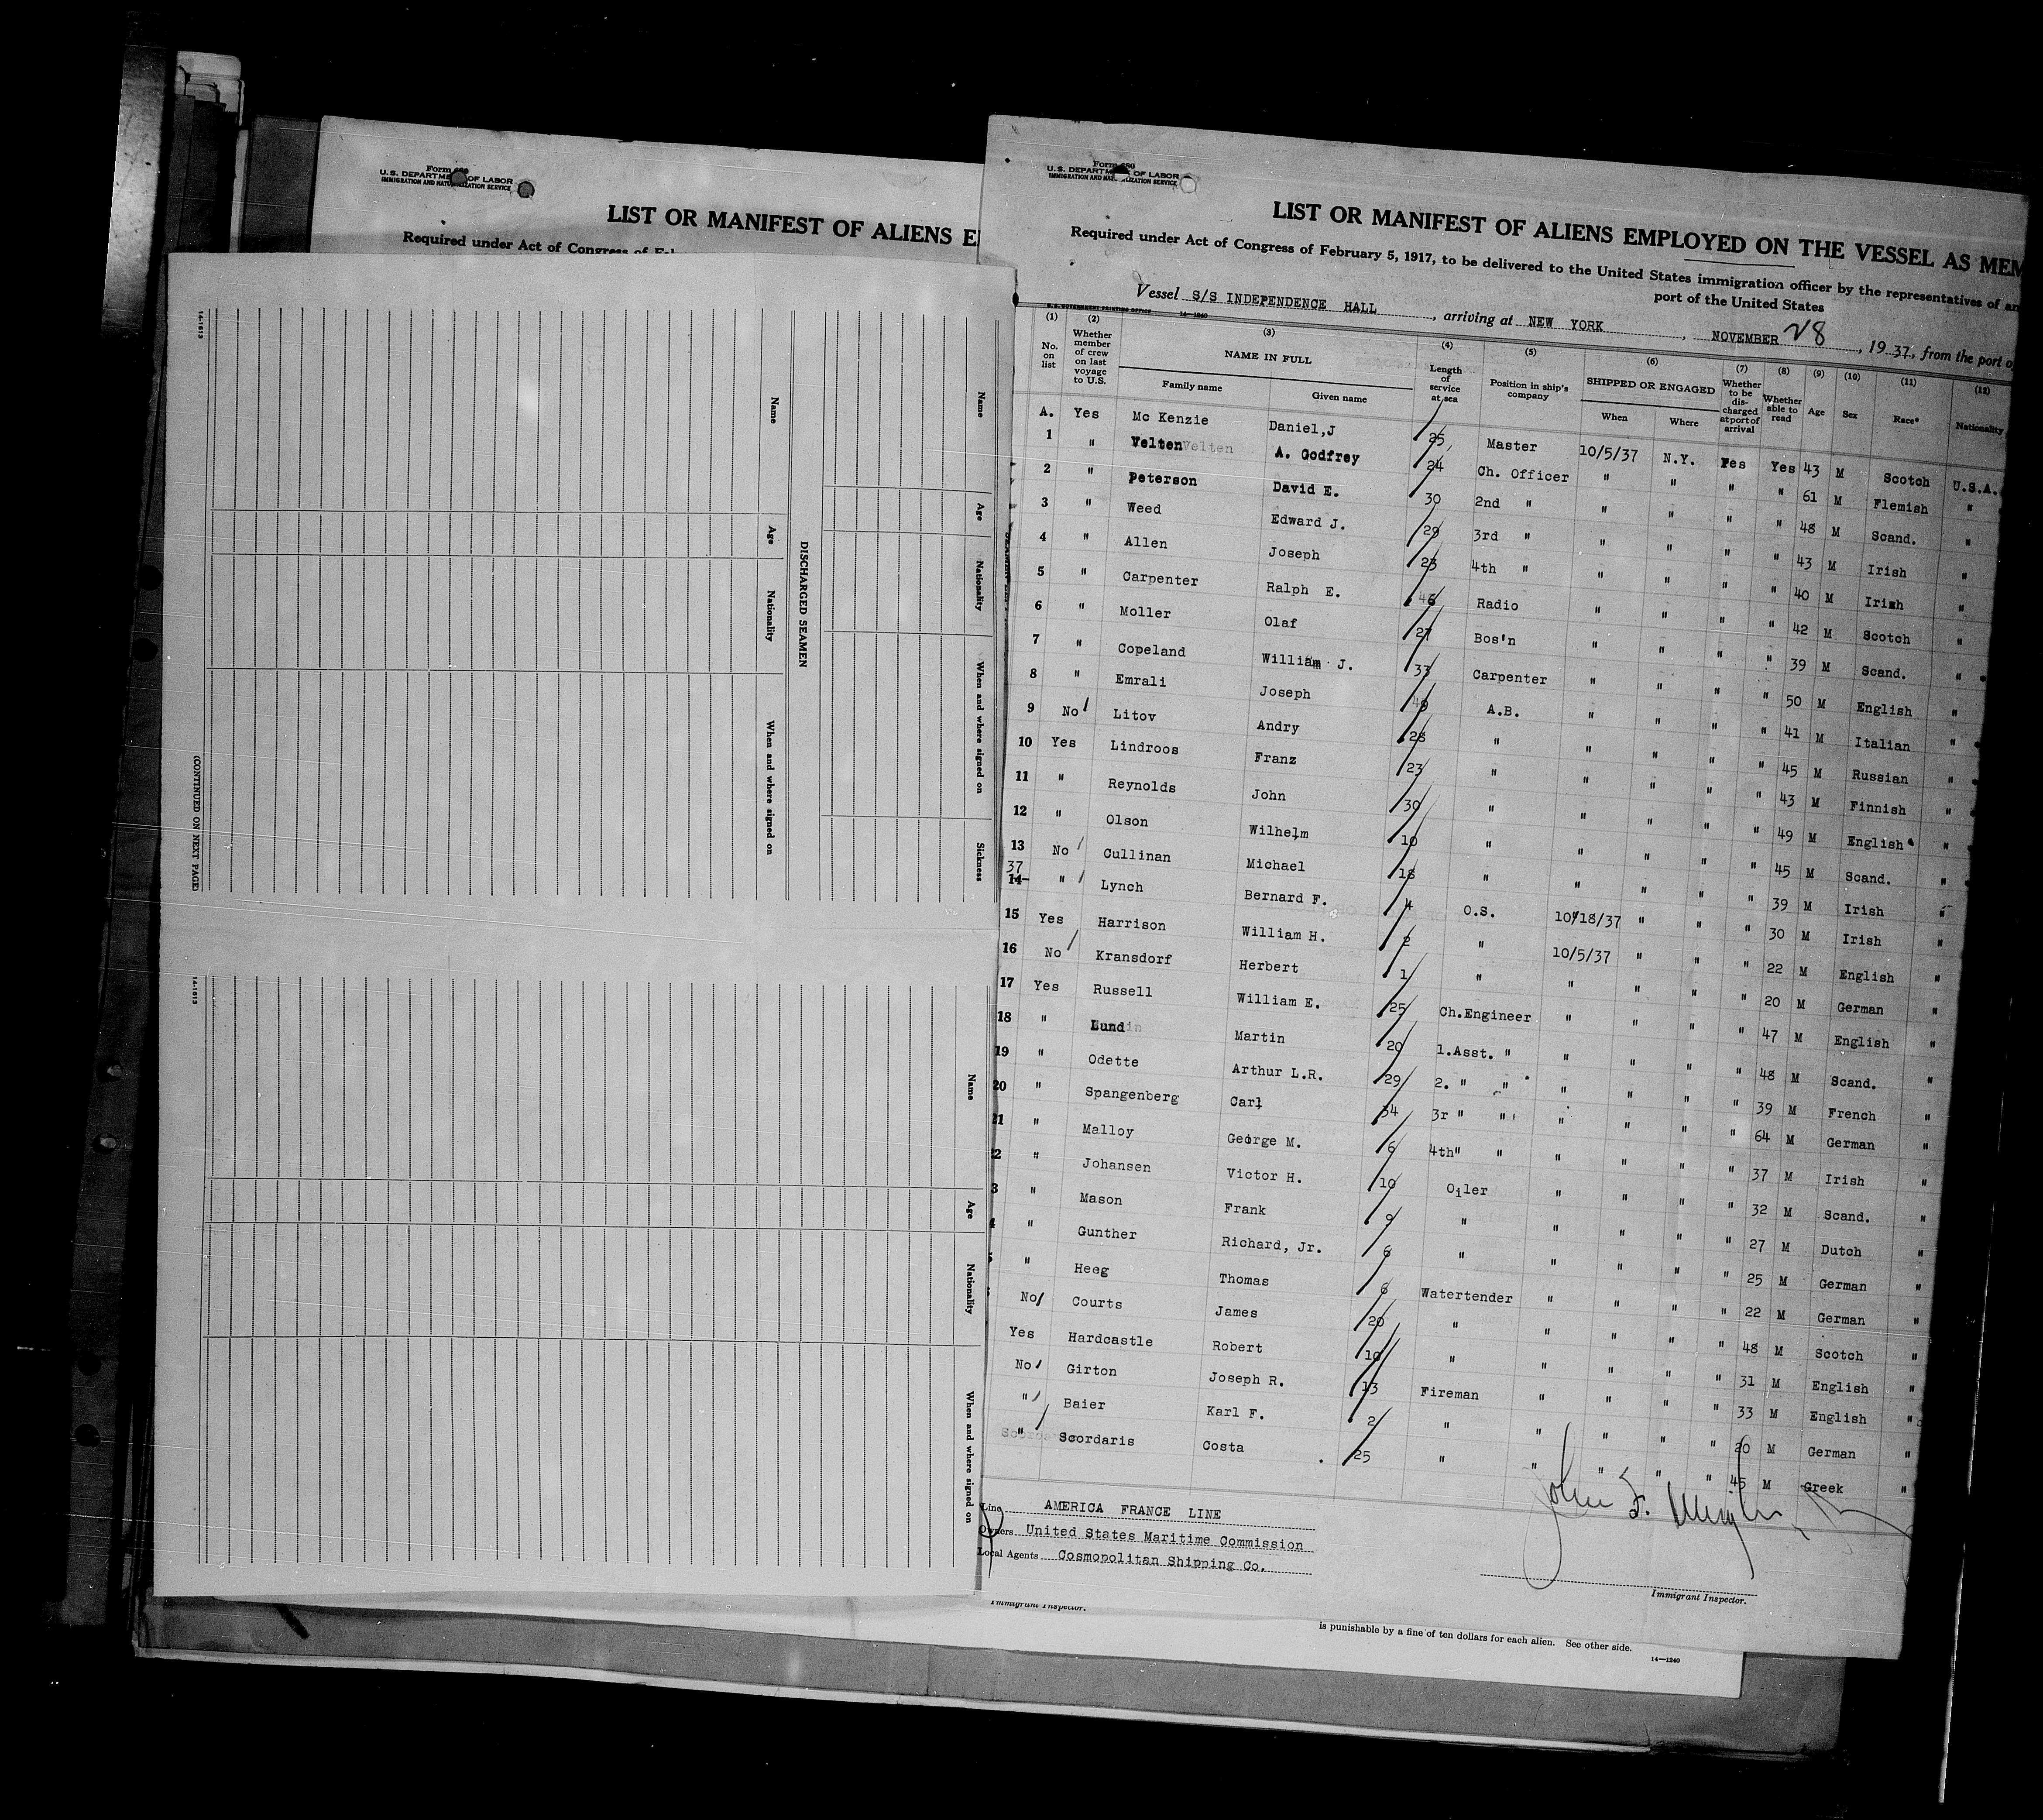 Form 680
U.S. DEPARTMENT OF LABOR
IMMIGRATION AND NATURALIZATION SERVICE
LIST OR MANIFEST OF ALIENS E
Required under Act of Congress of Feb
Form 680
U.S. DEPARTMENT OF LABOR
IMMIGRATION AND NATURALIZATION SERVICE
LIST OR MANIFEST OF ALIENS EMPLOYED ON THE VESSEL AS MEM
Required under Act of Congress of February 5, 1917, to be delivered to the United States immigration officer by the representatives of an
port of the United States
Vessel S/S INDEPENDENCE HALL, arriving at NEW YORK, NOVEMBER 28, 1937, from the port o
U.S. GOVERNMENT PRINTING OFFICE 14—1240
(1) No. on list
(2) Whether member of crew on last voyage to U.S.
(3) NAME IN FULL
Family name Given name
(4) Length of service at sea
(5) Position in ship's company
(6) SHIPPED OR ENGAGED
When Where
(7) Whether to be discharged at port of arrival
(8) Whether able to read
(9) Age
(10) Sex
(11) Race*
(12) Nationality
A. Yes Mc Kenzie Daniel,J 25 Master 10/5/37 N.Y. Yes Yes 43 M Scotch U.S.A.
1 " Velten A. Godfrey 24 Ch. Officer " " " " 61 M Flemish "
2 " Peterson David E. 30 2nd " " " " " 48 M Scand. "
3 " Weed Edward J. 29 3rd " " " " " 43 M Irish "
4 " Allen Joseph 23 4th " " " " " 40 M Irish "
5 " Carpenter Ralph E. Radio " " " " 42 M Scotch "
6 " Moller Olaf 27 Bos'n " " " " 39 M Scand. "
7 " Copeland William J. 33 Carpenter " " " " 50 M English "
8 " Emrali Joseph A.B. " " " " 41 M Italian "
9 No Litov Andry 28 " " " " " 45 M Russian "
10 Yes Lindroos Franz 23 " " " " " 43 M Finnish "
11 " Reynolds John 30 " " " " " 49 M English "
12 " Olson Wilhelm 10 " " " " " 45 M Scand. "
13 No Cullinan Michael 18 " " " " " 39 M Irish "
37
14 " Lynch Bernard F. 4 O.S. 10/18/37 " " " 30 M Irish "
15 Yes Harrison William H. 2 " 10/5/37 " " " 22 M English "
16 No Kransdorf Herbert 1 " " " " " 20 M German "
17 Yes Russell William E. 25 Ch.Engineer " " " " 47 M English "
18 " Lund Martin 20 1.Asst. " " " " " 48 M Scand. "
19 " Odette Arthur L.R. 29 2. " " " " " " 39 M French "
20 " Spangenberg Carl 34 3r " " " " " " 64 M German "
21 " Malloy George M. 6 4th" " " " " " 37 M Irish "
2 " Johansen Victor H. 10 Oiler " " " " 32 M Scand. "
3 " Mason Frank 9 " " " " " 27 M Dutch "
4 " Gunther Richard, Jr. 6 " " " " " 25 M German "
" Heeg Thomas 6 Watertender " " " " 22 M German "
No Courts James 20 " " " " " 48 M Scotch "
Yes Hardcastle Robert 10 " " " " " 31 M English "
No Girton Joseph R. 13 Fireman " " " " 33 M English "
" Baier Karl F. 2 " " " " " 20 M German "
" Scordaris Costa 25 " " " " " 45 M Greek "
Line AMERICA FRANCE LINE
Owners United States Maritime Commission
Local Agents Cosmopolitan Shipping Co.
John F.
Immigrant Inspector.
Immigrant Inspector.
is punishable by a fine of ten dollars for each alien. See other side.
14—1240
14-1613
Name
Age
Nationality
When and where signed on
Sickness
DISCHARGED SEAMEN
Name
Age
Nationality
When and where signed on
(CONTINUED ON NEXT PAGE)
14-1613
Name
Age
Nationality
When and where signed on